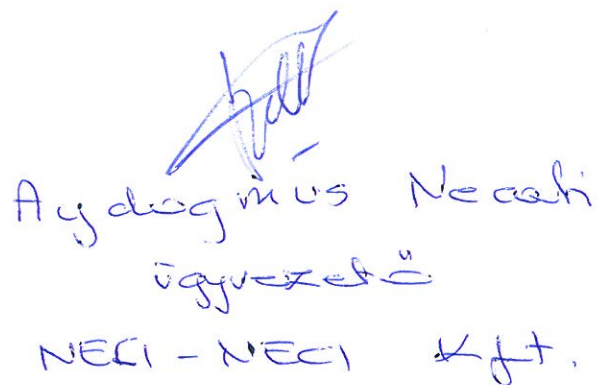 Aydogmus Necati
ügyvezető
NECI - NECI Kft.